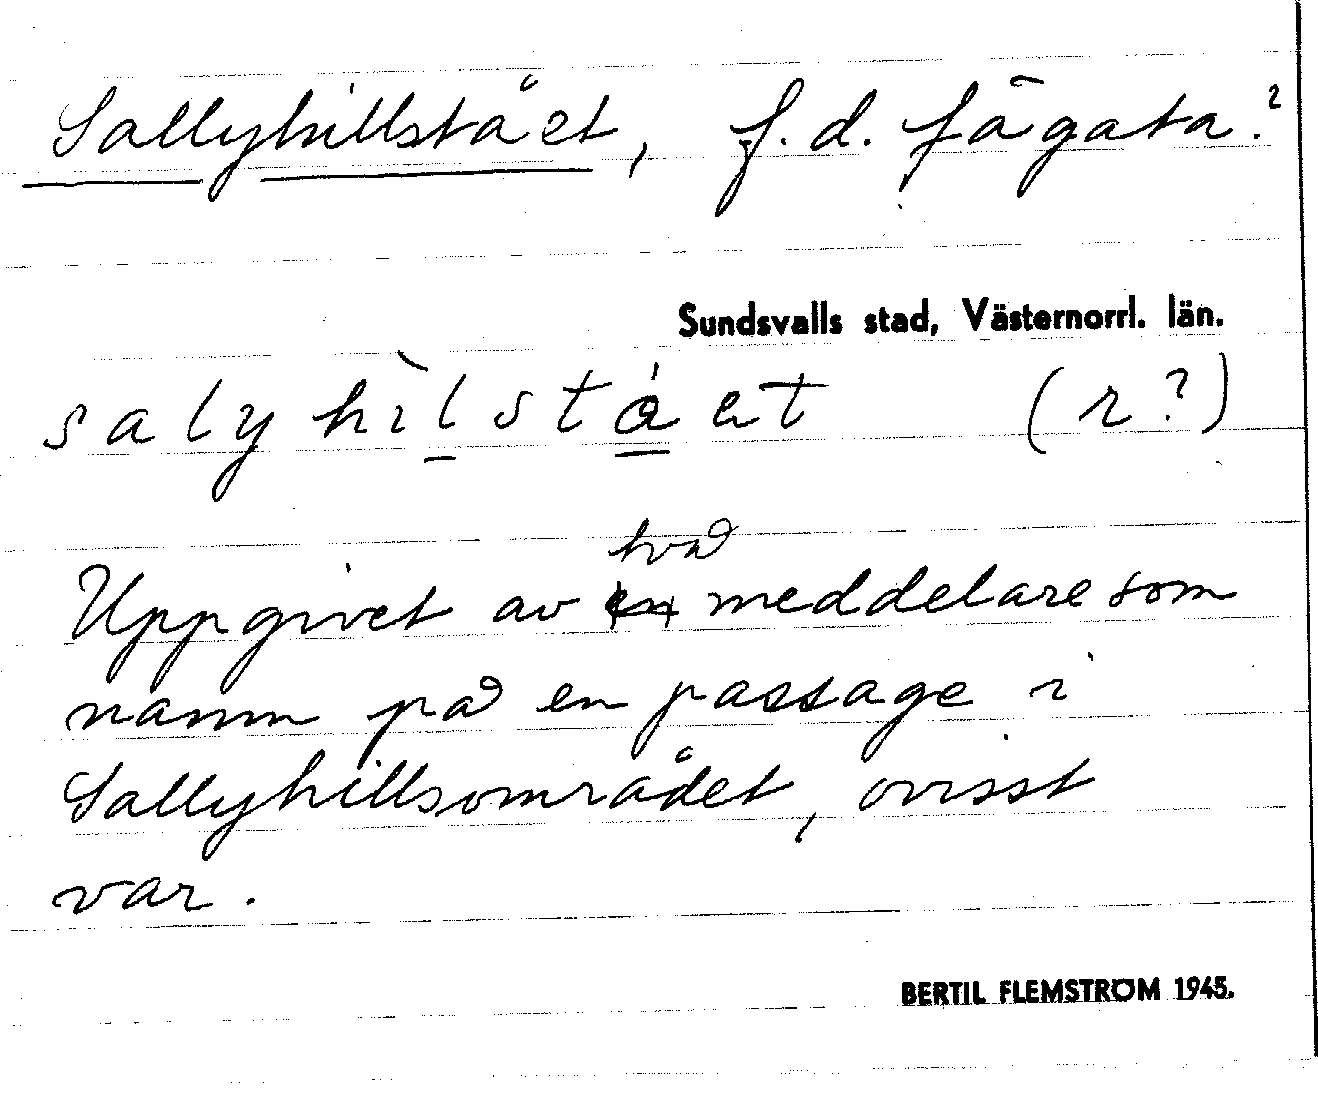 Sallyhillstået, f.d. fägata.?
Sundsvalls stad, Västernorrl. län.
salyhìlstá et (r?)
två
Uppgivet av en meddelare som
namn på en passage i
Sallyhillsområdet, ovisst
var.
BERTIL FLEMSTRÖM 1945.